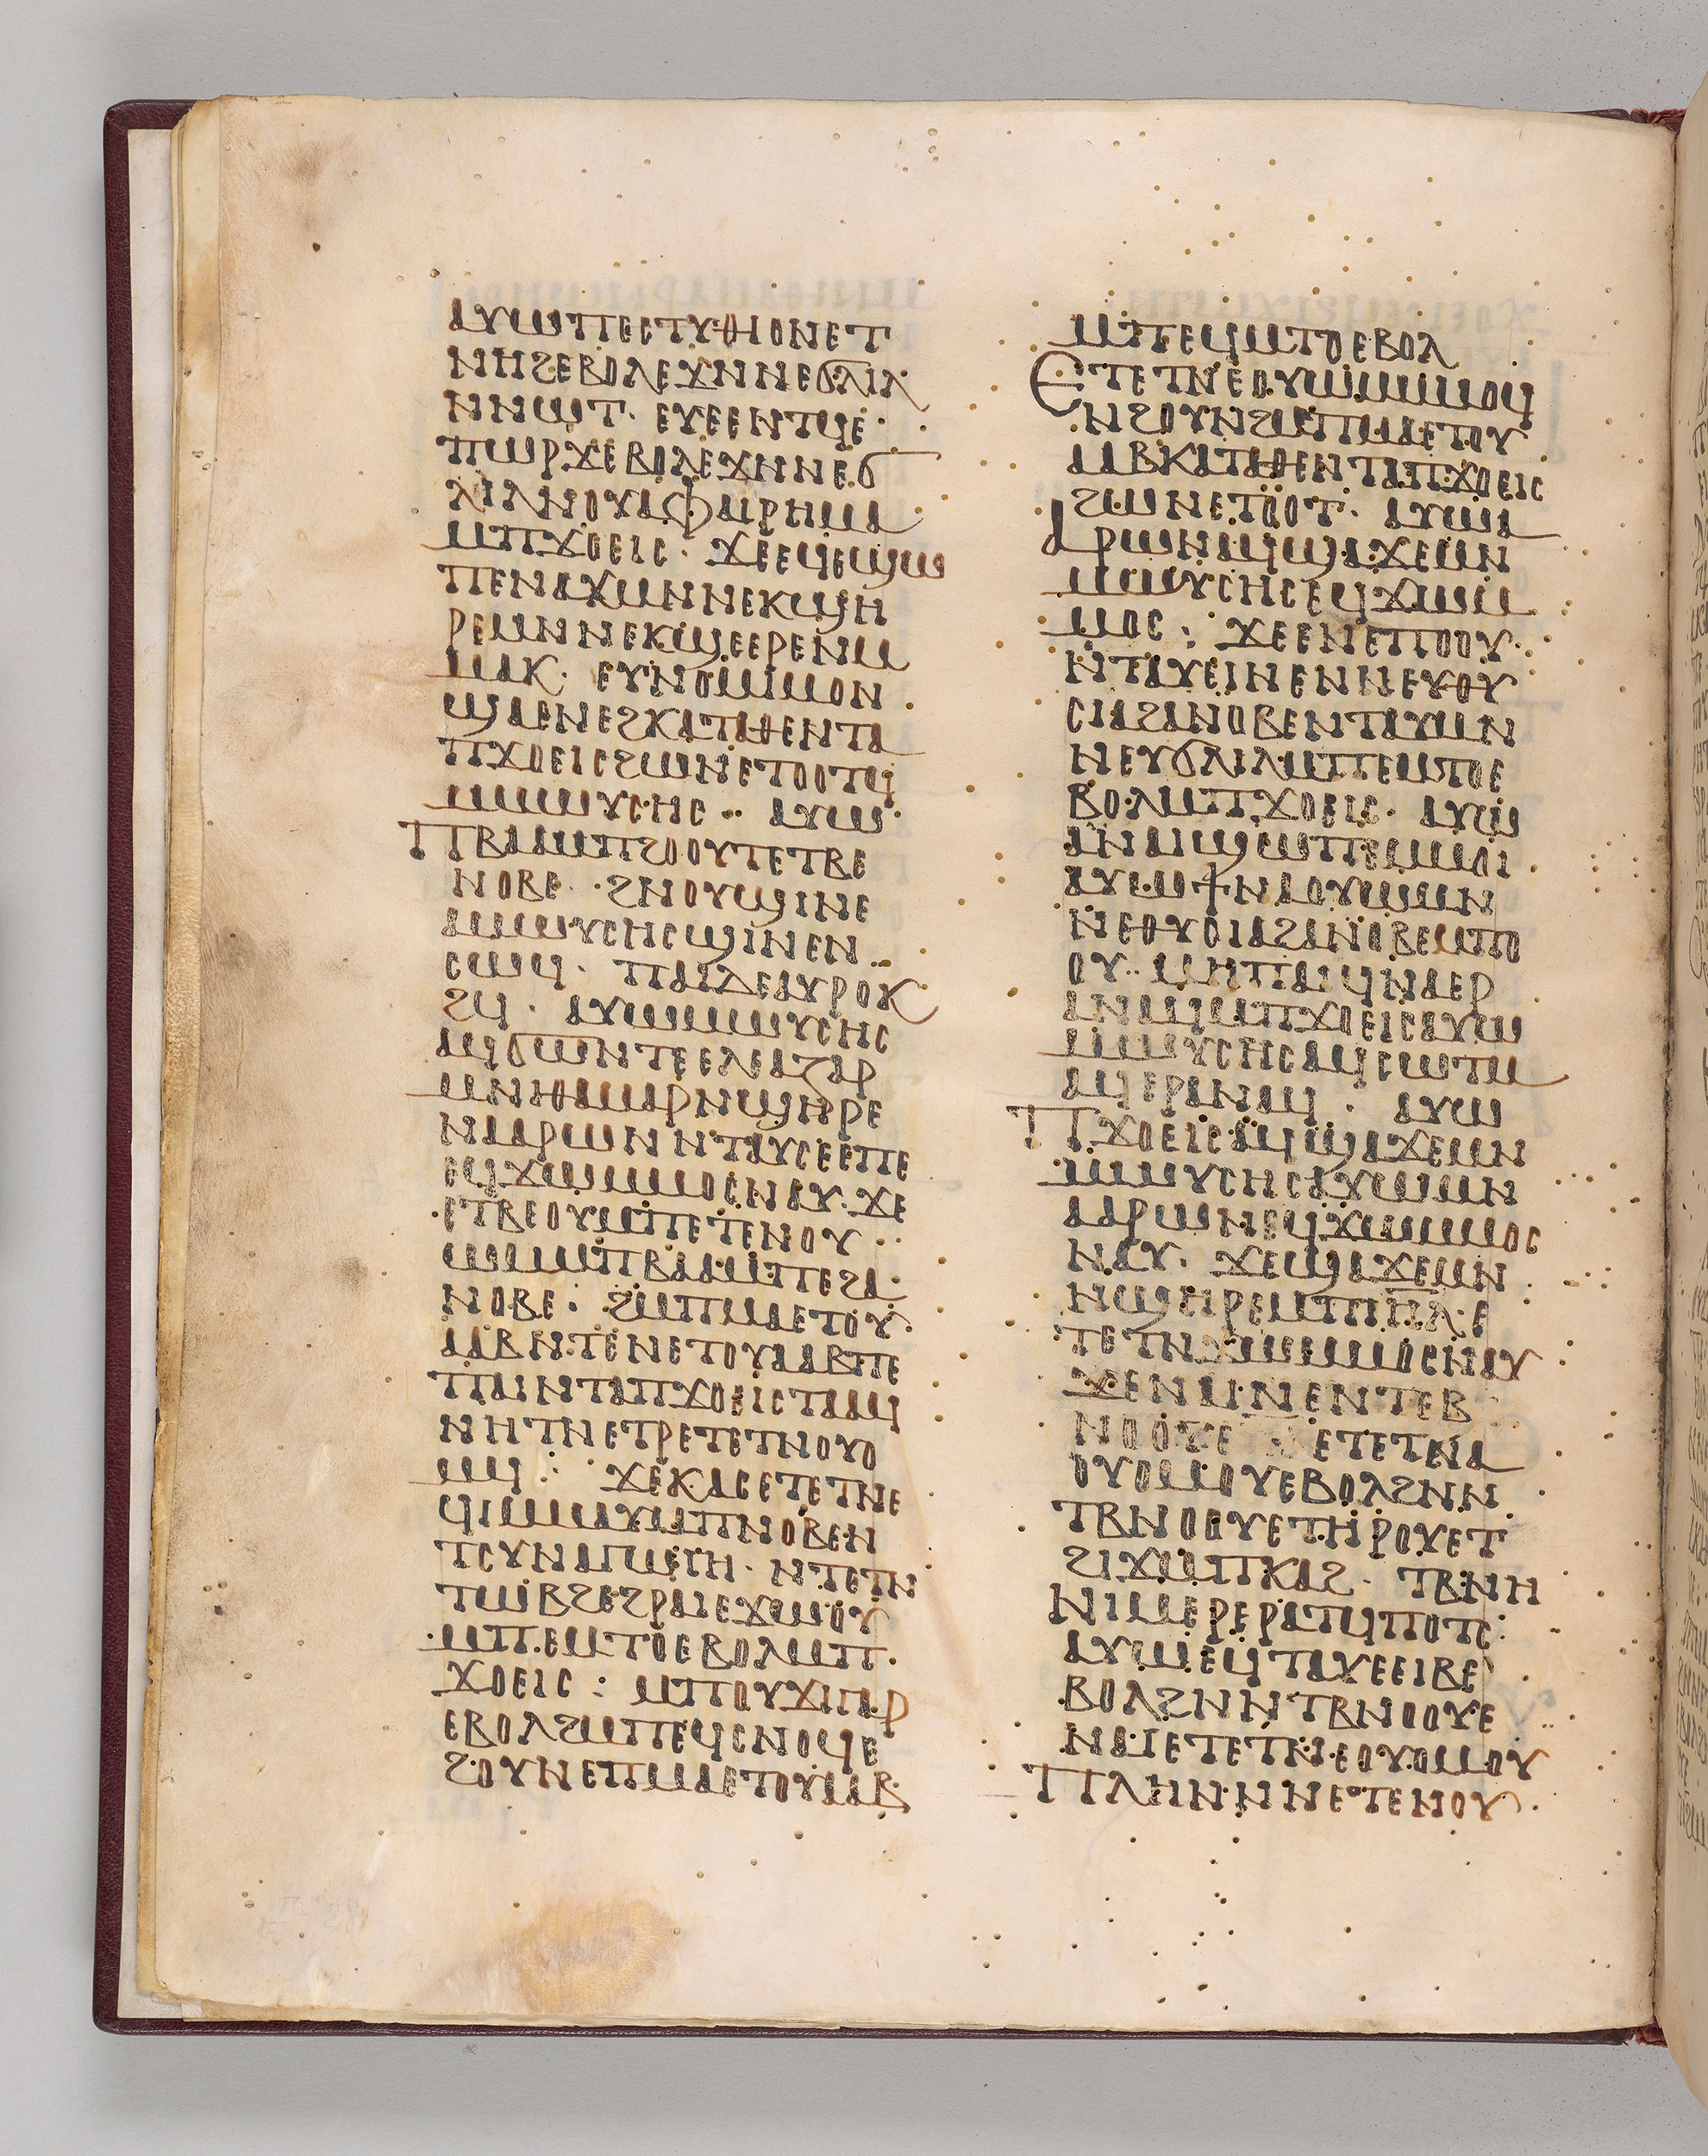 ⲁⲩⲱⲡⲉⲥⲧⲩⲑⲓⲟⲛⲉⲧ
ⲛⲏϩⲉⲃⲟⲗⲉϫⲛⲛⲉϭⲗⲓⲗ
ⲛⲛⲱⲧ· ⲉⲩⲉⲉⲛⲧϥⲉ·
ⲡⲱⲣϫⲉⲃⲟⲗⲉϫⲛⲛⲉϭ
ⲗⲓⲗⲛⲟⲩⲁⲫⲁⲓⲣⲏⲙⲁ
ⲙⲡϫⲟⲉⲓⲥ· ϫⲉⲉϥⲉϣⲱ
ⲡⲉⲛⲁⲕⲙⲛⲛⲉⲕϣⲏ
ⲣⲉⲙⲛⲛⲉⲕϣⲉⲉⲣⲉⲛⲙ
ⲙⲁⲕ· ⲉⲩⲛⲟⲙⲓⲙⲟⲛ
ϣⲁⲉⲛⲉϩⲕⲁⲧⲁⲑⲉⲛⲧⲁ
ⲡϫⲟⲉⲓⲥϩⲱⲛⲉⲧⲟⲟⲧϥ
ⲙⲙⲱⲩⲥⲏⲥ·· ⲁⲩⲱ·
ⲡⲃⲁⲁⲙⲡϩⲟⲟⲩⲧⲉⲧⲃⲉ
ⲛⲟⲃⲉ· ·ϩⲛⲟⲩϣⲓⲛⲉ
ⲁⲙⲱⲩⲥⲏⲥϣⲓⲛⲉⲛ
ⲥⲱϥ· ⲡⲁⲓⲇⲉⲁⲩⲣⲟⲕ
ϩϥ· ⲁⲩⲱⲁⲙⲱⲩⲥⲏⲥ
ⲁϥϭⲱⲛⲧⲉⲉⲗⲉⲁⲍⲁⲣ
ⲙⲛⲓⲑⲁⲙⲁⲣⲛϣⲏⲣⲉ
ⲛⲁⲁⲣⲱⲛⲛⲧⲁⲩⲥⲉⲉⲡⲉ
ⲉϥϫⲱⲙⲙⲟⲥⲛⲁⲩ·ϫⲉ
·ⲉⲧⲃⲉⲟⲩⲙⲡⲉⲧⲉⲛⲟⲩ
ⲱⲙⲙⲡⲃⲁⲁⲙⲡⲉϩⲁ
ⲛⲟⲃⲉ· ϩⲙⲡⲙⲁⲉⲧⲟⲩ·
ⲁⲁⲃⲛⲧⲉⲛⲉⲧⲟⲩⲁⲁⲃⲡⲉ
ⲡⲁⲓⲛⲧⲁⲡϫⲟⲉⲓⲥⲧⲁⲁϥ
ⲛⲏⲧⲛⲉⲧⲣⲉⲧⲉⲧⲛⲟⲩⲟ
ⲙϥ: ϫⲉⲕⲁⲥⲉⲧⲉⲧⲛⲉ
ϥⲓⲙⲙⲁⲩⲙⲡⲛⲟⲃⲉⲛ
ⲧⲥⲩⲛⲁⲅⲱⲅⲏ· ⲛⲧⲉⲧⲛ
ⲧⲱⲃϩⲉϩⲣⲁⲓⲉϫⲱⲟⲩ
·ⲙⲡⲉⲙⲧⲟⲉⲃⲟⲗⲙⲡ
ϫⲟⲉⲓⲥ: ⲙⲡⲟⲩϫⲓⲡⲁⲣ
ⲉⲃⲟⲗϩⲙⲡⲉϥⲥⲛⲟϥⲉ
ϩⲟⲩⲛⲉⲡⲙⲁⲉⲧⲟⲩⲁⲁⲃ
ⲙⲡⲉϥⲙⲧⲟⲉⲃⲟⲗ
ⲉⲧⲉⲧⲛⲉⲟⲩⲱⲙⲙⲙⲟϥ
ⲛϩⲟⲩⲛϩⲙⲡⲙⲁⲉⲧⲟⲩ
ⲁⲁⲃⲕⲁⲧⲁⲑⲉⲛⲧⲁⲡϫⲟⲉⲓⲥ
ϩⲱⲛⲉⲧⲟⲟⲧ· ⲁⲩⲱⲁ
ⲁⲣⲱⲛⲁϥϣⲁϫⲉⲙⲛ
ⲙⲱⲩⲥⲏⲥⲉϥϫⲱⲙ
ⲙⲟⲥ: ϫⲉⲉⲛⲉⲡⲟⲟⲩ
ⲛⲧⲁⲩⲉⲓⲛⲉⲛⲛⲉⲩⲑⲩ
ⲥⲓⲁϩⲁⲛⲟⲃⲉⲛⲧⲁⲩⲙⲛ
ⲛⲉⲩϭⲗⲓⲗⲙⲡⲉⲙⲧⲟⲉ
ⲃⲟⲗⲙⲡϫⲟⲉⲓⲥ· ⲁⲩⲱ
ⲁⲛⲁⲓϣⲱⲡⲉⲙⲙⲟⲓ
ⲁⲩⲉⲙϯⲛⲁⲟⲩⲱⲙⲛ
ⲛⲉⲑⲩⲥⲓⲁϩⲁⲛⲟⲃⲉⲙⲡⲟ
ⲟⲩ·· ⲙⲏⲡⲁⲓϥⲛⲁⲉⲣ
ⲁⲛⲁϥⲙⲡϫⲟⲉⲓⲥⲁⲩⲱ
ⲙⲙⲱⲩⲥⲏⲥⲁϥⲥⲱⲧⲙ
ⲁϥⲉⲣⲁⲛⲁϥ· ⲁⲩⲱ
ⲡϫⲟⲉⲓⲥⲁϥϣⲁϫⲉⲙⲛ
ⲙⲱⲩⲥⲏⲥⲁⲩⲱⲙⲛ
ⲁⲁⲣⲱⲛⲉϥϫⲱⲙⲙⲟⲥ
ⲛⲁⲩ· ϫⲉϣⲁϫⲉⲙⲛ
ⲛϣⲏⲣⲉⲙⲡⲓⲏⲗ·ⲉ
ⲧⲉⲧⲛϫⲱⲙⲙⲟⲥⲛⲁⲩ
ϫⲉⲛⲁⲓⲛⲉⲛⲧⲉⲃ
ⲛⲟⲟⲩⲉ ⲉⲧⲉⲧⲛⲁ
ⲟⲩⲟⲙⲟⲩⲉⲃⲟⲗϩⲛⲛ
ⲧⲃⲛⲟⲟⲩⲉⲧⲏⲣⲟⲩⲉⲧ
ϩⲓϫⲙⲡⲕⲁϩ· ⲧⲃⲛⲏ
ⲛⲓⲙⲉⲣⲉⲣⲁⲧϥⲡⲟⲣϫ
ⲁⲩⲱⲉϥⲧⲁⲩⲉⲉⲓⲃⲉ
ⲃⲟⲗϩⲛⲛⲧⲃⲛⲟⲟⲩⲉ
ⲛⲁⲓⲉⲧⲉⲧⲛⲉⲟⲩⲟⲙⲟⲩ
ⲡⲗⲏⲛ·ⲛⲛⲉⲧⲉⲛⲟⲩ